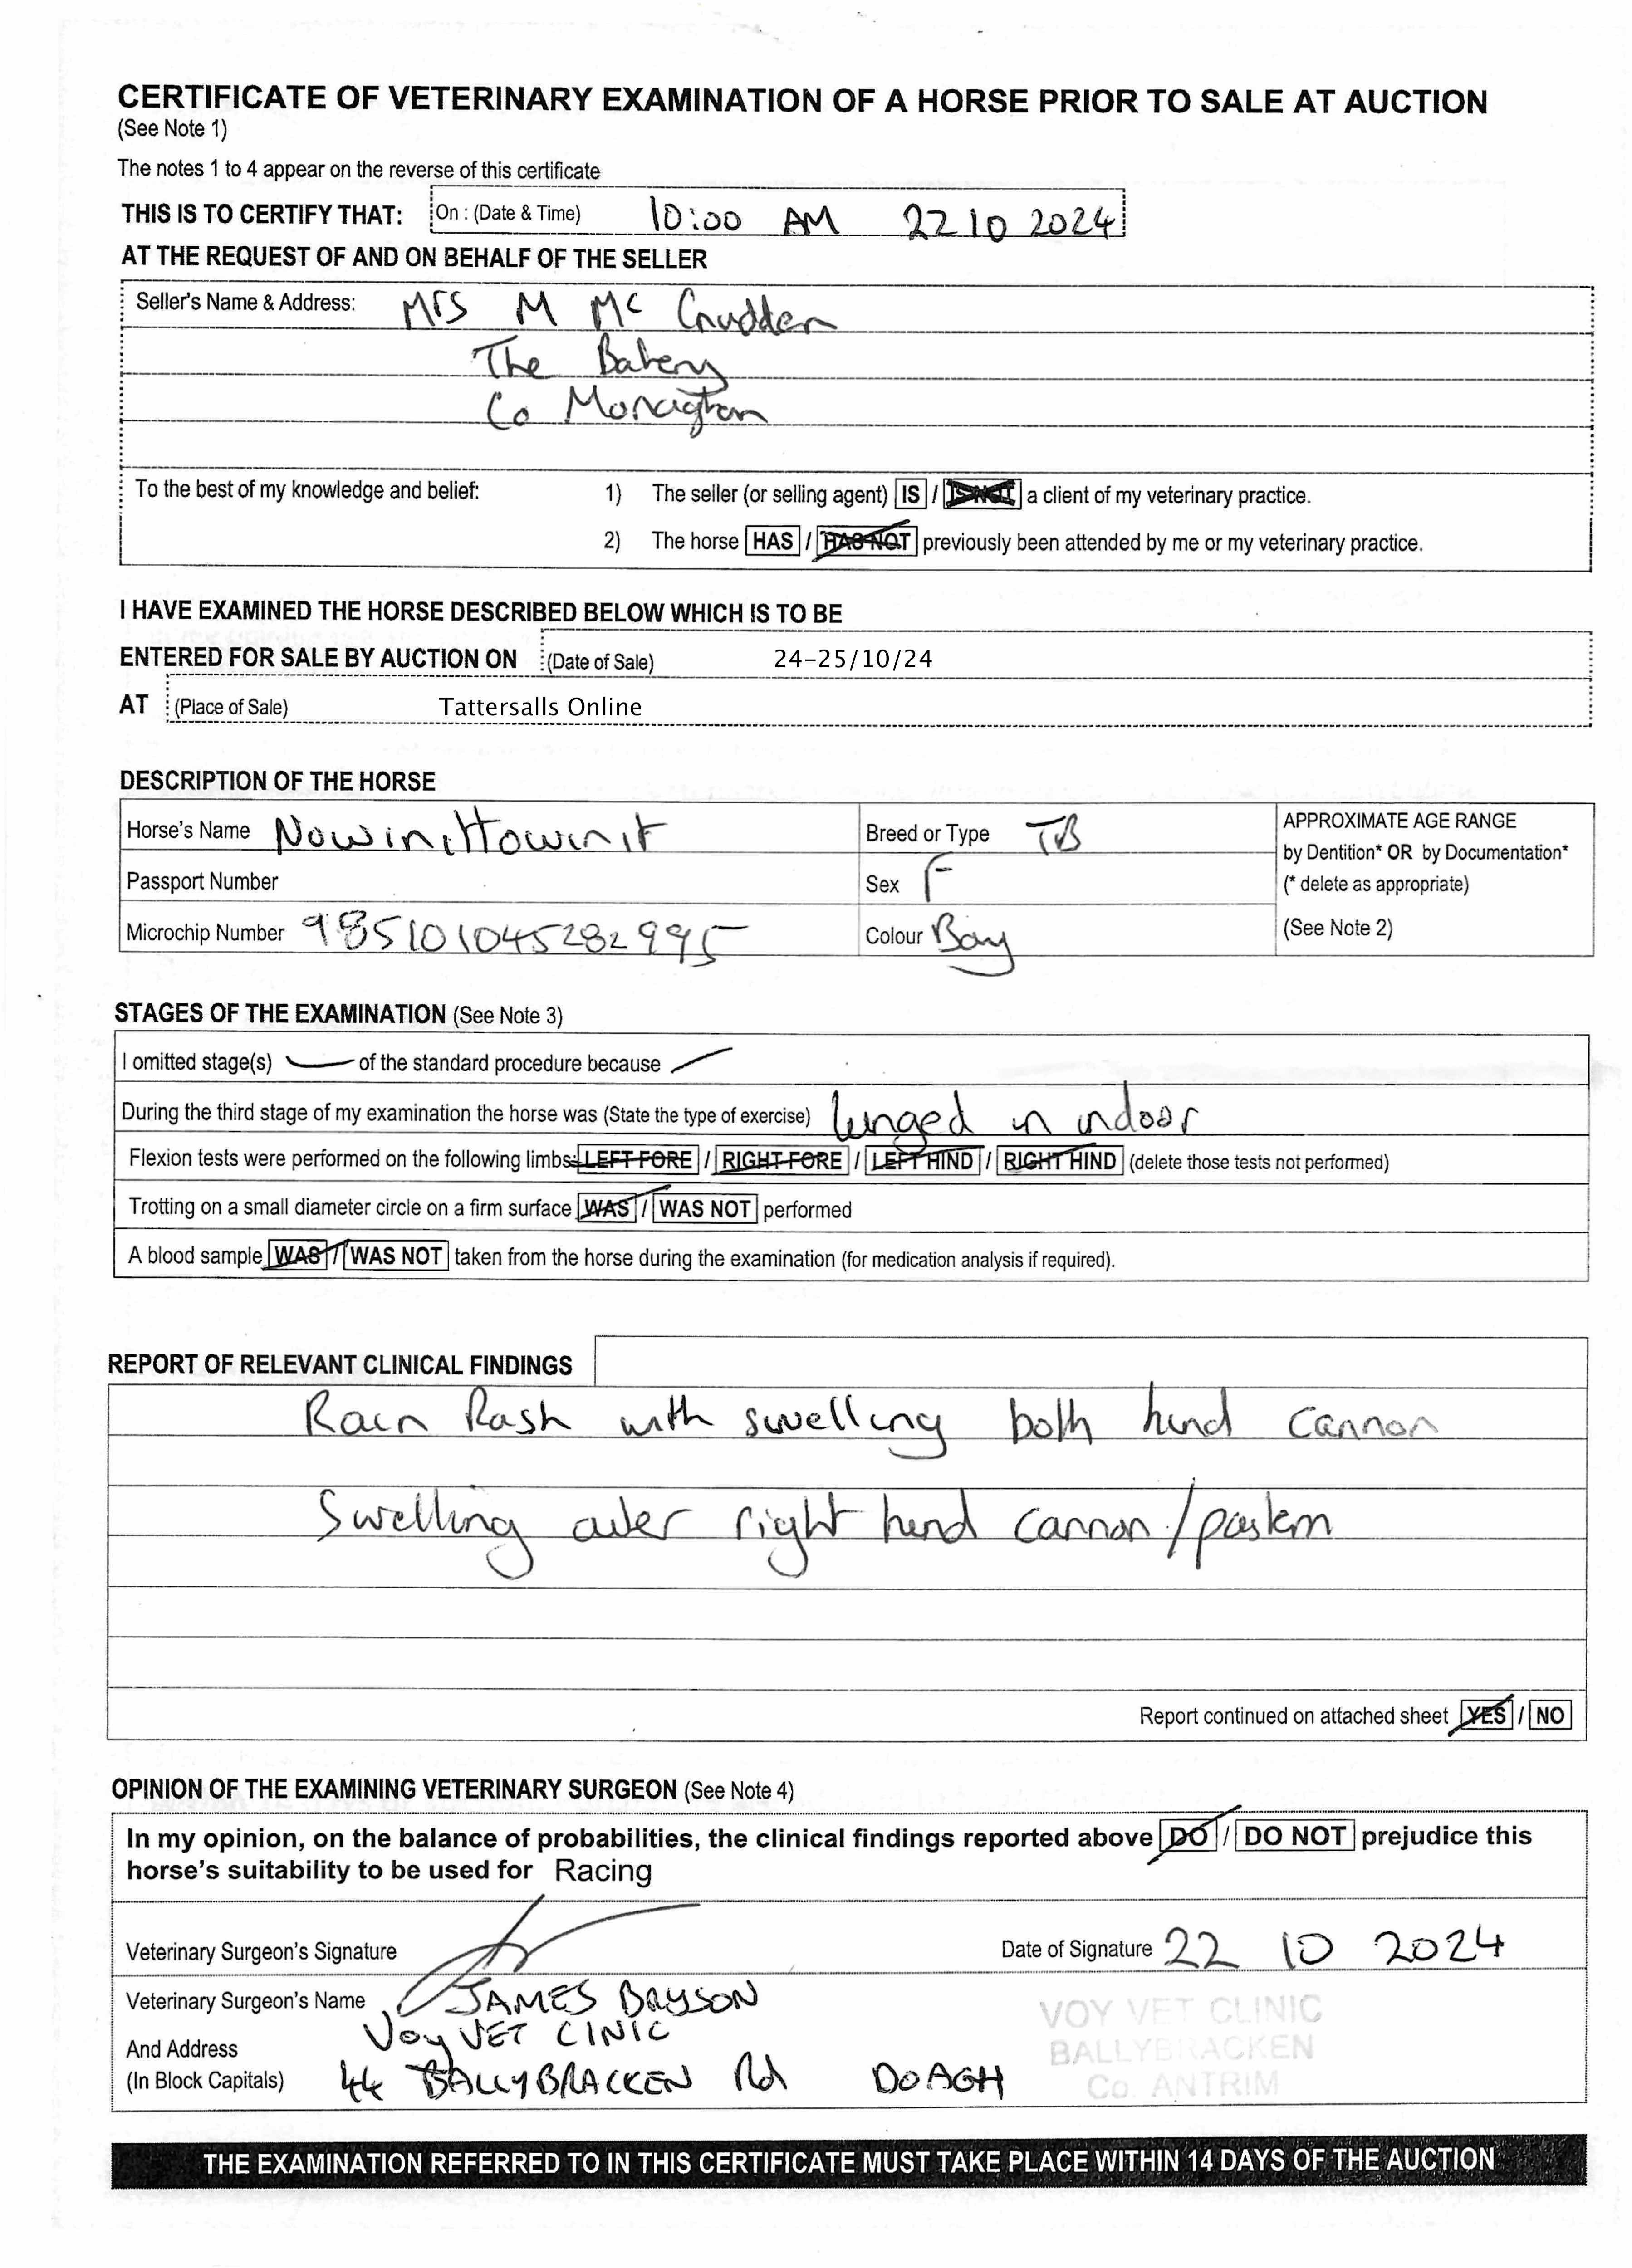 CERTIFICATE OF VETERINARY EXAMINATION OF A HORSE PRIOR TO SALE AT AUCTION
(See Note 1)
The notes 1 to 4 appear on the reverse of this certificate
THIS IS TO CERTIFY THAT: On : (Date & Time) 10:00 AM 22 10 2024
AT THE REQUEST OF AND ON BEHALF OF THE SELLER
Seller's Name & Address: Mrs M Mc Crudden
The Bakery
Co Monaghan
To the best of my knowledge and belief: 1) The seller (or selling agent) IS / IS NOT a client of my veterinary practice.
2) The horse HAS / HAS NOT previously been attended by me or my veterinary practice.
I HAVE EXAMINED THE HORSE DESCRIBED BELOW WHICH IS TO BE
ENTERED FOR SALE BY AUCTION ON (Date of Sale) 24-25/10/24
AT (Place of Sale) Tattersalls Online
DESCRIPTION OF THE HORSE
Horse's Name Nowinittowinit Breed or Type TB APPROXIMATE AGE RANGE
by Dentition* OR by Documentation*
Passport Number Sex F (* delete as appropriate)
Microchip Number 985101045282995 Colour Bay (See Note 2)
STAGES OF THE EXAMINATION (See Note 3)
I omitted stage(s) — of the standard procedure because —
During the third stage of my examination the horse was (State the type of exercise) lunged in indoor
Flexion tests were performed on the following limbs: LEFT FORE / RIGHT FORE / LEFT HIND / RIGHT HIND (delete those tests not performed)
Trotting on a small diameter circle on a firm surface WAS / WAS NOT performed
A blood sample WAS / WAS NOT taken from the horse during the examination (for medication analysis if required).
REPORT OF RELEVANT CLINICAL FINDINGS
Rain Rash with swelling both hind cannon
Swelling outer right hind cannon / pastern
Report continued on attached sheet YES / NO
OPINION OF THE EXAMINING VETERINARY SURGEON (See Note 4)
In my opinion, on the balance of probabilities, the clinical findings reported above DO / DO NOT prejudice this
horse's suitability to be used for Racing
Veterinary Surgeon's Signature Date of Signature 22 10 2024
Veterinary Surgeon's Name JAMES BRYSON
VOY VET CLINIC
And Address Voy VET CLINIC
BALLYBRACKEN
(In Block Capitals) 44 BALLYBRACKEN Rd DOAGH
Co. ANTRIM
THE EXAMINATION REFERRED TO IN THIS CERTIFICATE MUST TAKE PLACE WITHIN 14 DAYS OF THE AUCTION